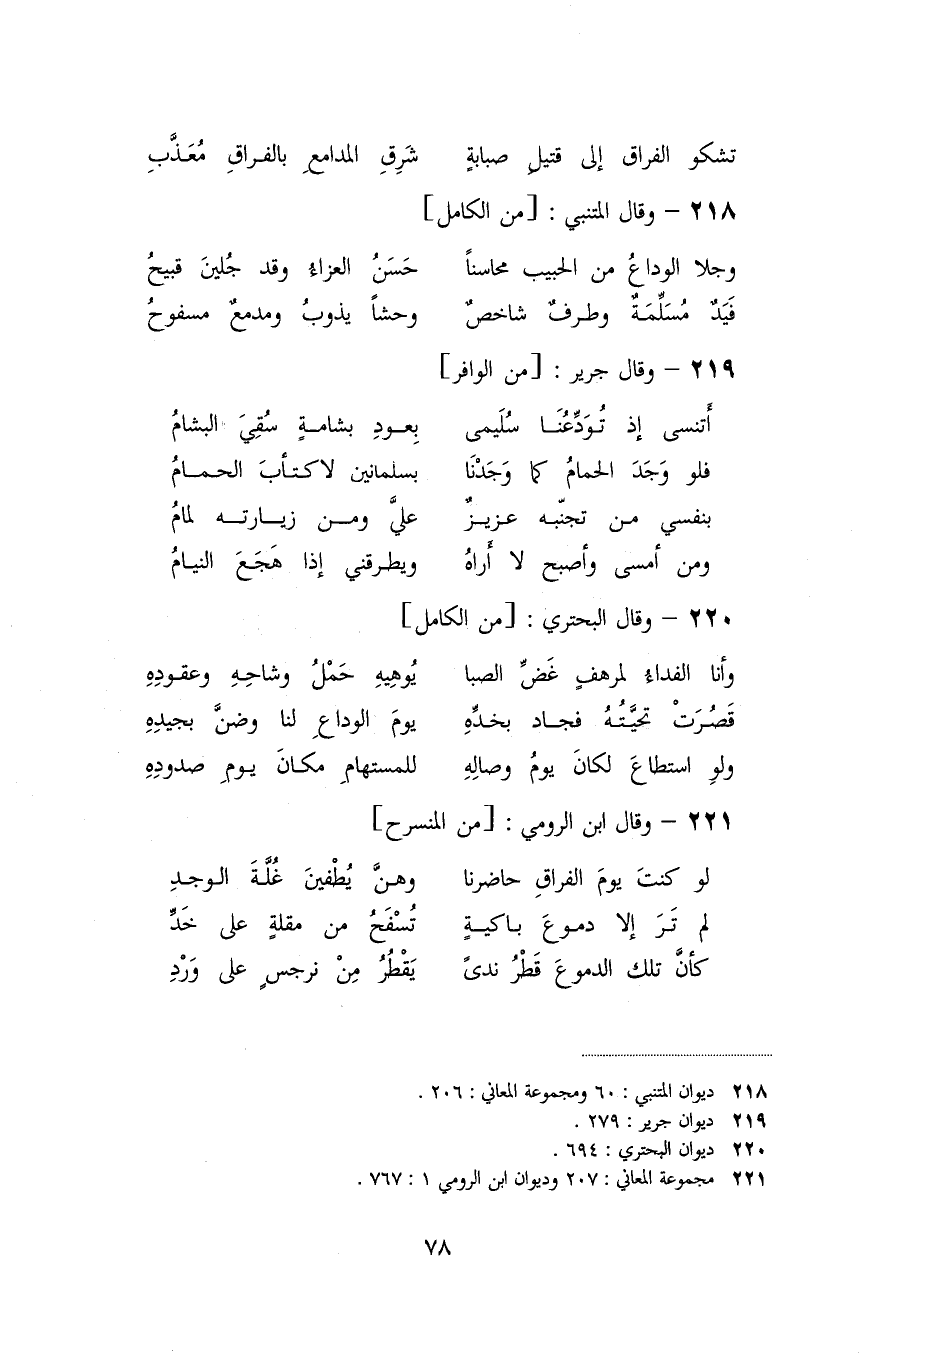 تشكو الفراق إلى قتيلِ صبابةٍ شَرِقِ المدامعِ بالفراقِ مُعَذَّبِ
٢١٨ – وقال المتنبي : [من الكامل]
وجلا الوداعُ من الحبيب محاسناً حَسَنُ العزاءُ وقد جُلينَ قبيحُ
فَيَدٌ مُسَلِّمَةٌ وطرفٌ شاخصٌ وحشاً يذوبُ ومدمعٌ مسفوحُ
٢١٩ – وقال جرير : [من الوافر]
أَتنسى إذ تُوَدِّعُنَا سُلَيمى بِعودِ بشامةٍ سُقِيَ البشامُ
فلو وَجَدَ الحمامُ كما وَجَدْنَا بسلمانين لاكتأبَ الحمامُ
بنفسي من تجنّبه عزيزٌ عليَّ ومن زيارته لمامُ
ومن أمسى وأصبح لا أَراهُ ويطرقني إذا هَجَعَ النيامُ
٢٢٠ – وقال البحتري : [من الكامل]
وأنا الفداءُ لمرهفٍ غَضِّ الصبا يُوهِيهِ حَمْلُ وشاحِهِ وعقودِهِ
قَصُرَتْ تحيَّتُهُ فجاد بخدِّهِ يومَ الوداعِ لنا وضنَّ بجيدِهِ
ولوِ استطاعَ لكانَ يومُ وصالِهِ للمستهامِ مكانَ يومِ صدودِهِ
٢٢١ – وقال ابن الرومي : [من المنسرح]
لو كنتَ يومَ الفراقِ حاضرنا وهنَّ يُطْفينَ غُلَّةَ الوجدِ
لم تَرَ إلا دموعَ باكيةٍ تُسْفَحُ من مقلةٍ على خَدِّ
كأنَّ تلك الدموعَ قَطْرُ ندىً يَقْطُرُ مِنْ نرجسٍ على وَرْدِ
٢١٨ ديوان المتنبي : ٦٠ ومجموعة المعاني : ٢٠٦ .
٢١٩ ديوان جرير : ٢٧٩ .
٢٢٠ ديوان البحتري : ٦٩٤ .
٢٢١ مجموعة المعاني : ٢٠٧ وديوان ابن الرومي ١ : ٧٦٧ .
٧٨